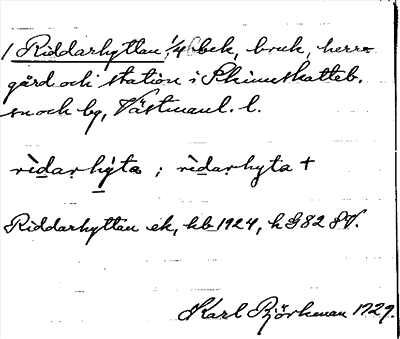 1 Riddarhyttan 1/4 bek, bruk, herr-
gård och station i Skinnskatteb.
sn och bg, Västmanl. l.
rìdarhỳta ; rìdarhyta +
Riddarhyttan ek, hb 1924, k G82 SV.
Karl Björkman 1929.